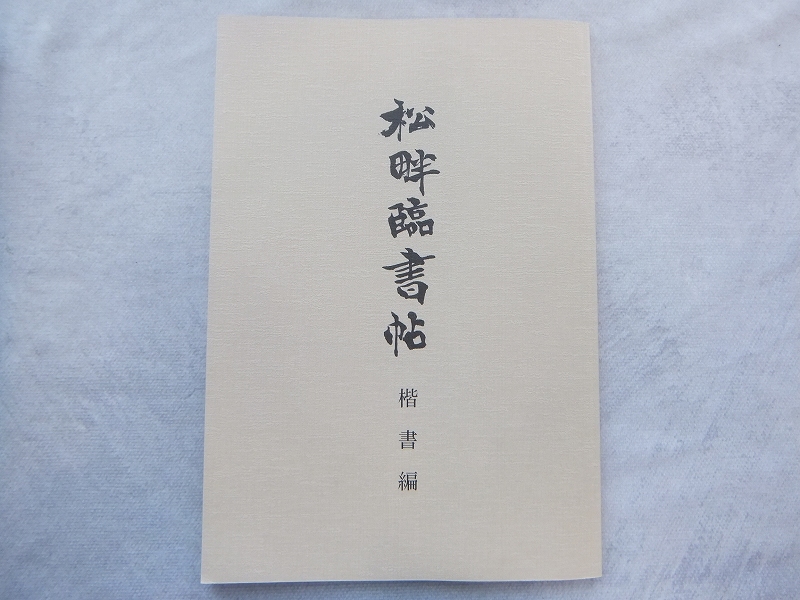 松畔臨書帖
楷書編